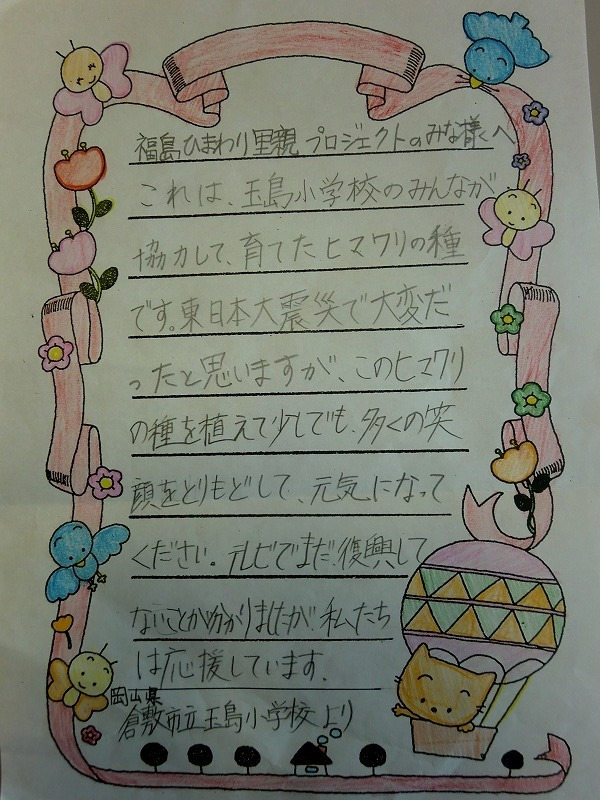 福島ひまわり里親プロジェクトのみな様へ
これは、玉島小学校のみんなが
協力して、育てたヒマワリの種
です。東日本大震災で大変だ
ったと思いますが、このヒマワリ
の種を植えて少しでも、多くの笑
顔をとりもどして、元気になって
ください。テレビでまだ、復興して
ないことが分かりましたが、私たち
は応援しています。
岡山県
倉敷市立玉島小学校より